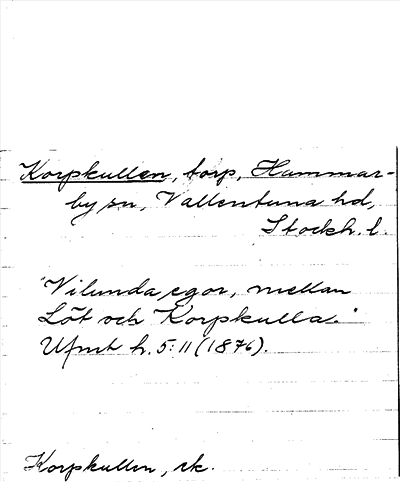 Korpkullen, torp, Hammar-
by sn, Vallentuna hd,
Stockh. l.
"Vilunda egor, mellan
Löt och Korpkulla."
Ufmt h. 5:11 (1876).
Korpkullen, rk.